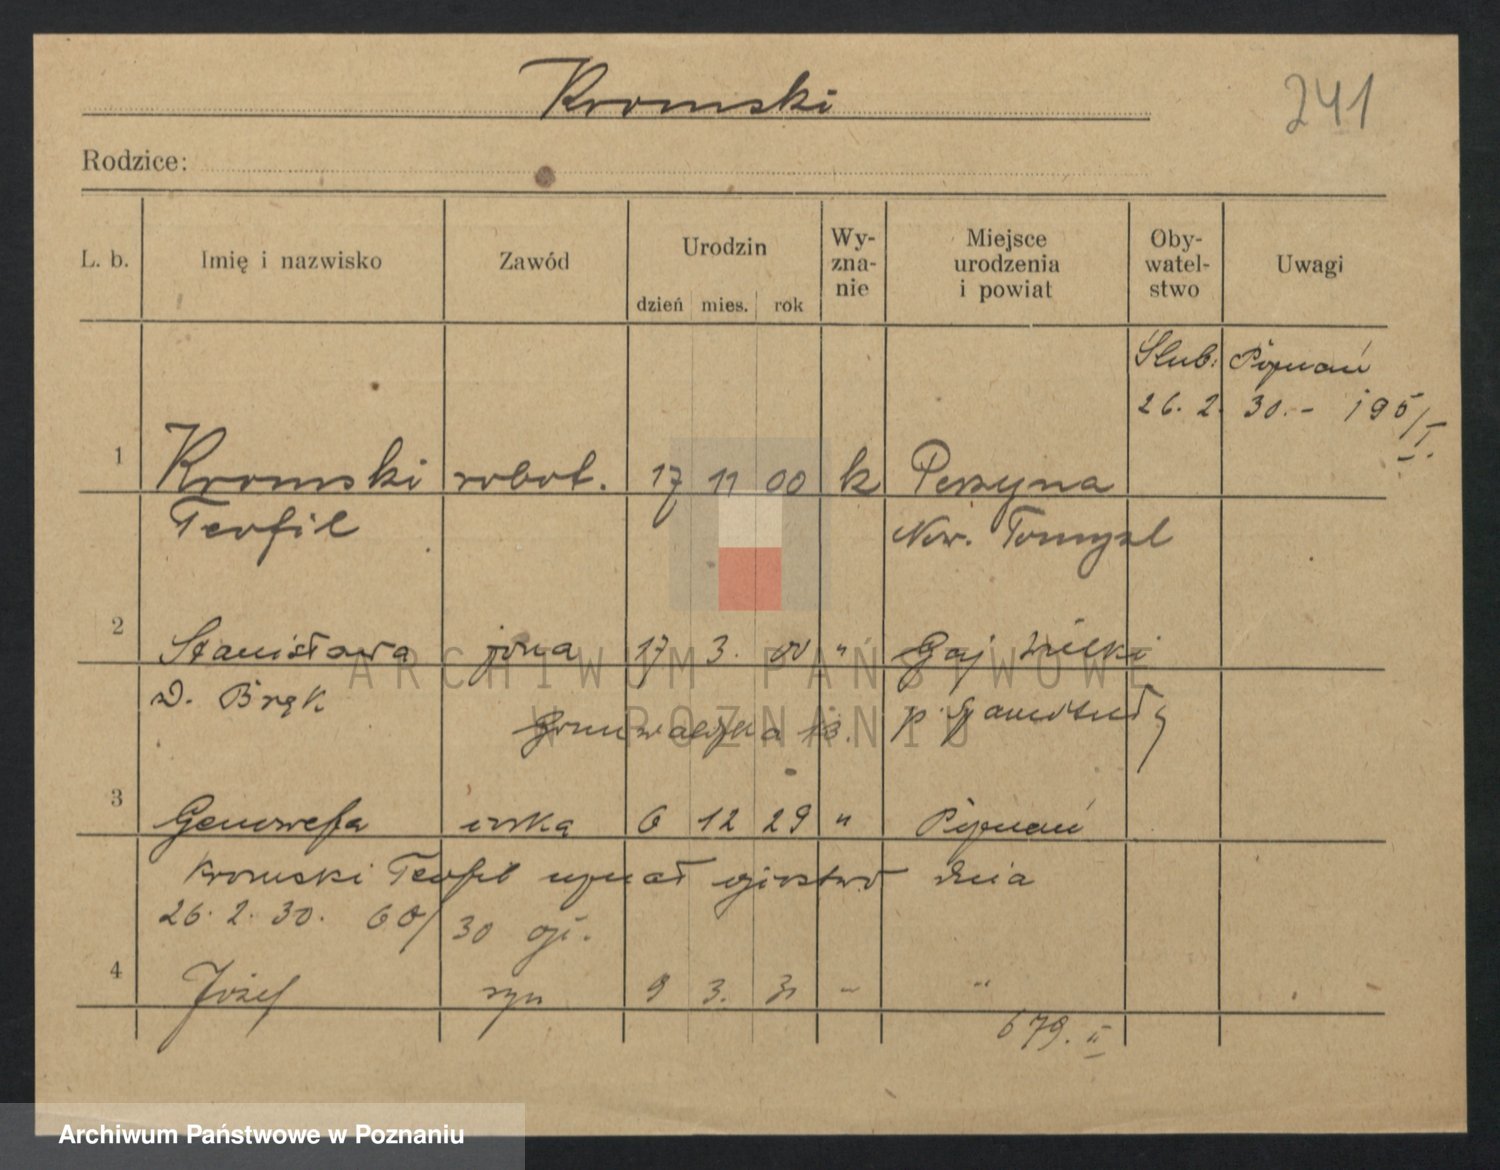 Kromski
241
Rodzice:
L. b. Imię i nazwisko Zawód Urodzin dzień mies. rok Wy-zna-nie Miejsce urodzenia i powiat Oby-watel-stwo Uwagi
Ślub: Poznań
26. 2. 30. - 195/I.
1 Kromski robot. 17 11 00 k Perzyna
Teofil Now. Tomyśl
2 Stanisława żona 17 3. 00 " Gaj Wielki
D. Bręk p. Szamotuły
Grunwaldzka 13.
3 Genowefa córka 6 12 29 " Poznań
Kromski Teofil uznał ojcostwo dnia
26. 2. 30. 60/30 oji.
4 Józef syn 9 3. 31 " "
679. II
ARCHIWUM PAŃSTWOWE
W POZNANIU
Archiwum Państwowe w Poznaniu